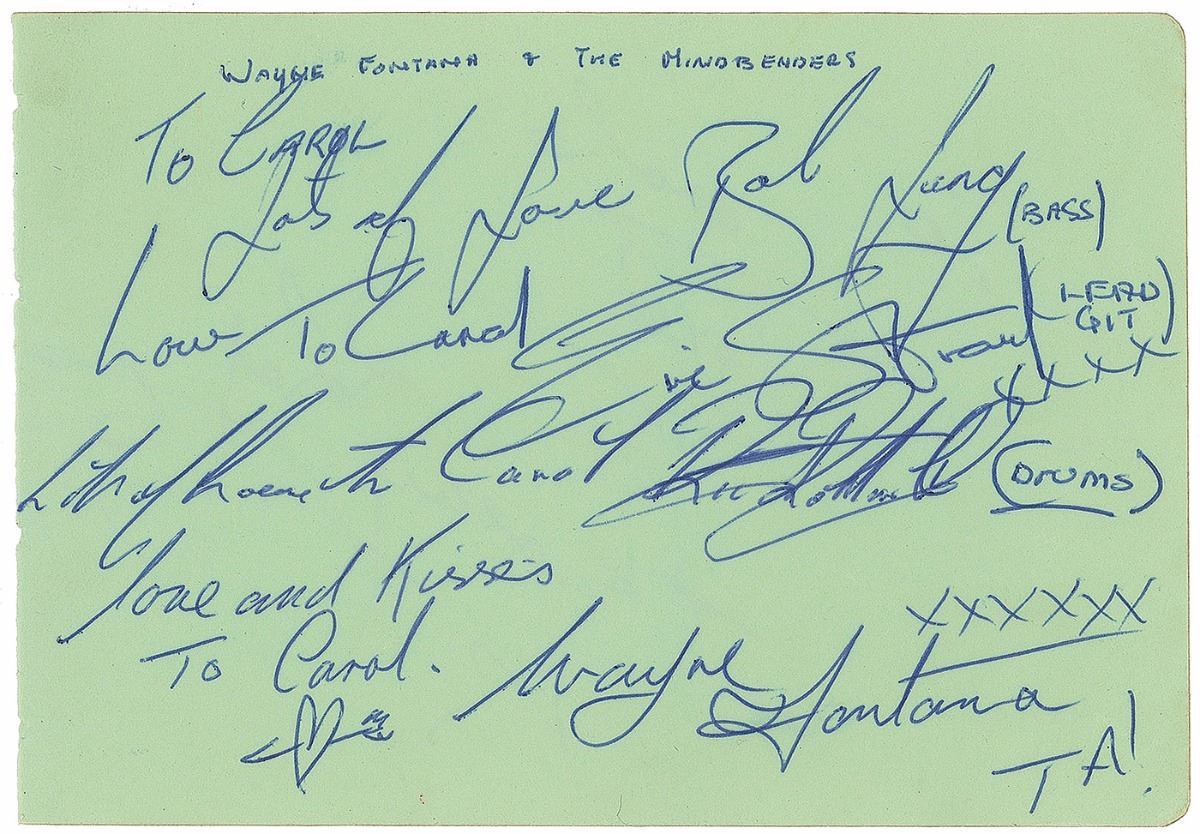 WAYNE FONTANA & THE MINDBENDERS
To CAROL
Lots of Love Bob Lang (BASS)
Love To Carol Eric Stewart (LEAD GIT
xxxx
Lots of Love with Carol Ric Rothwell (DRUMS)
love and Kisses
xxxxxx
To Carol. Wayne Fontana
TA!